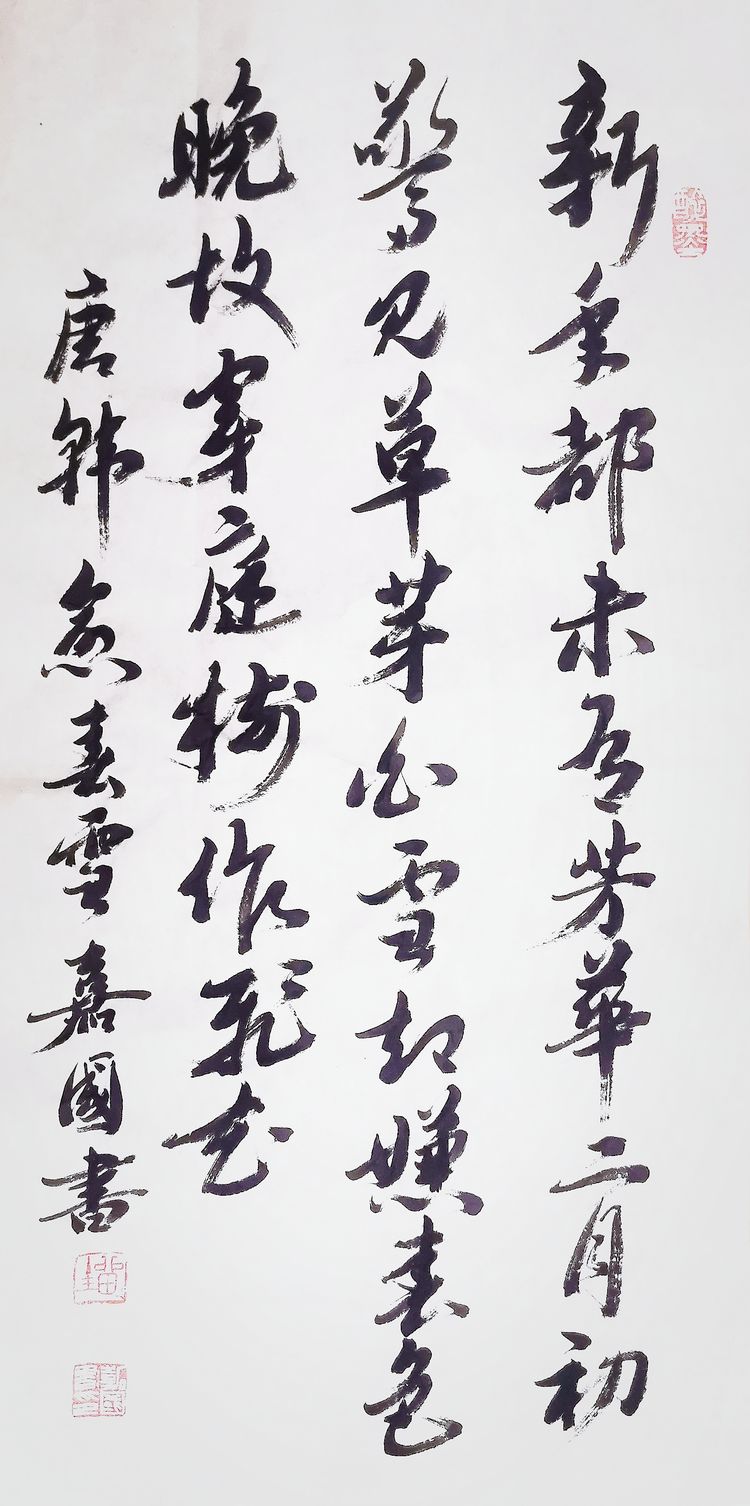 新年都未有芳華二月初
驚見草芽白雪却嫌春色
晚故穿庭樹作飛花
唐韩愈春雪嘉國書